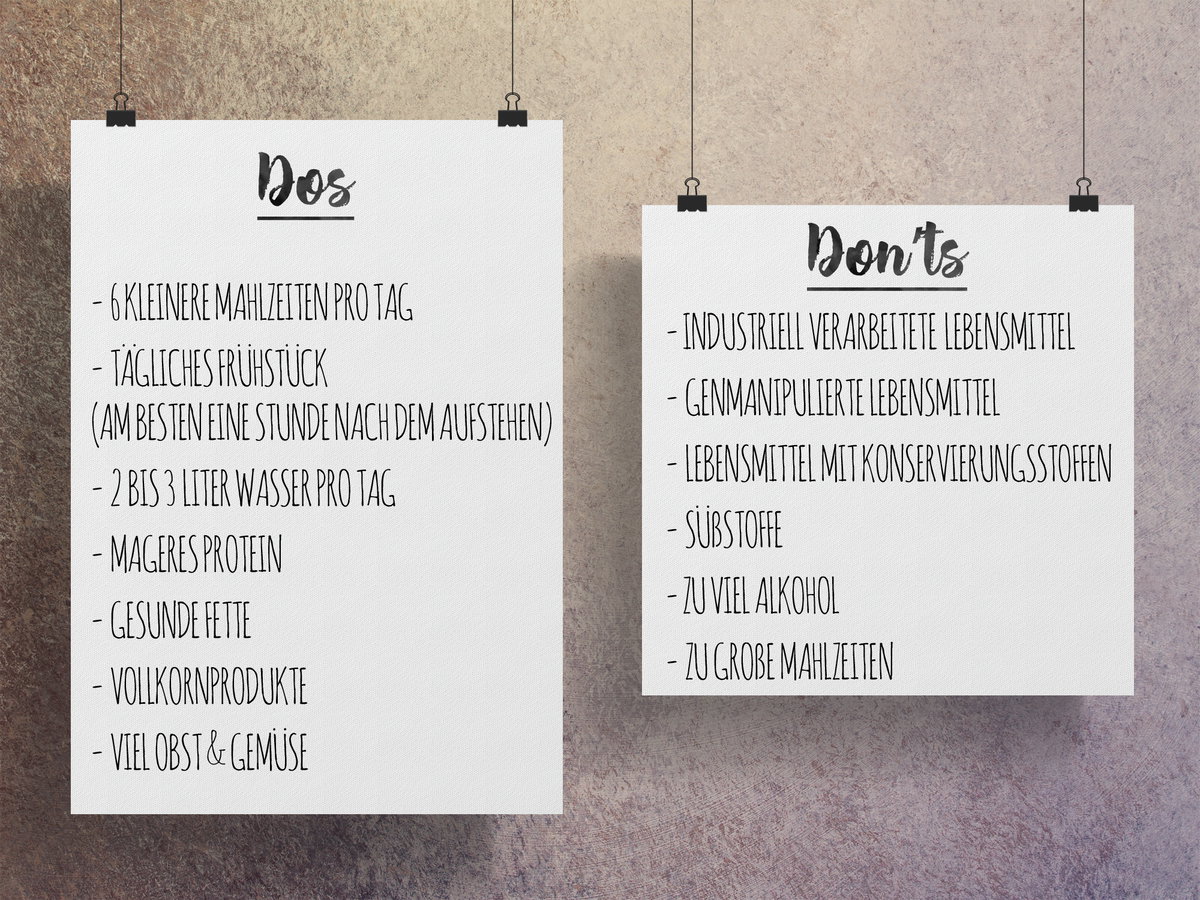 Dos
- 6 KLEINERE MAHLZEITEN PRO TAG
- TÄGLICHES FRÜHSTÜCK
(AM BESTEN EINE STUNDE NACH DEM AUFSTEHEN)
- 2 BIS 3 LITER WASSER PRO TAG
- MAGERES PROTEIN
- GESUNDE FETTE
- VOLLKORNPRODUKTE
- VIEL OBST & GEMÜSE
Don'ts
- INDUSTRIELL VERARBEITETE LEBENSMITTEL
- GENMANIPULIERTE LEBENSMITTEL
- LEBENSMITTEL MIT KONSERVIERUNGSSTOFFEN
- SÜßSTOFFE
- ZU VIEL ALKOHOL
- ZU GROßE MAHLZEITEN